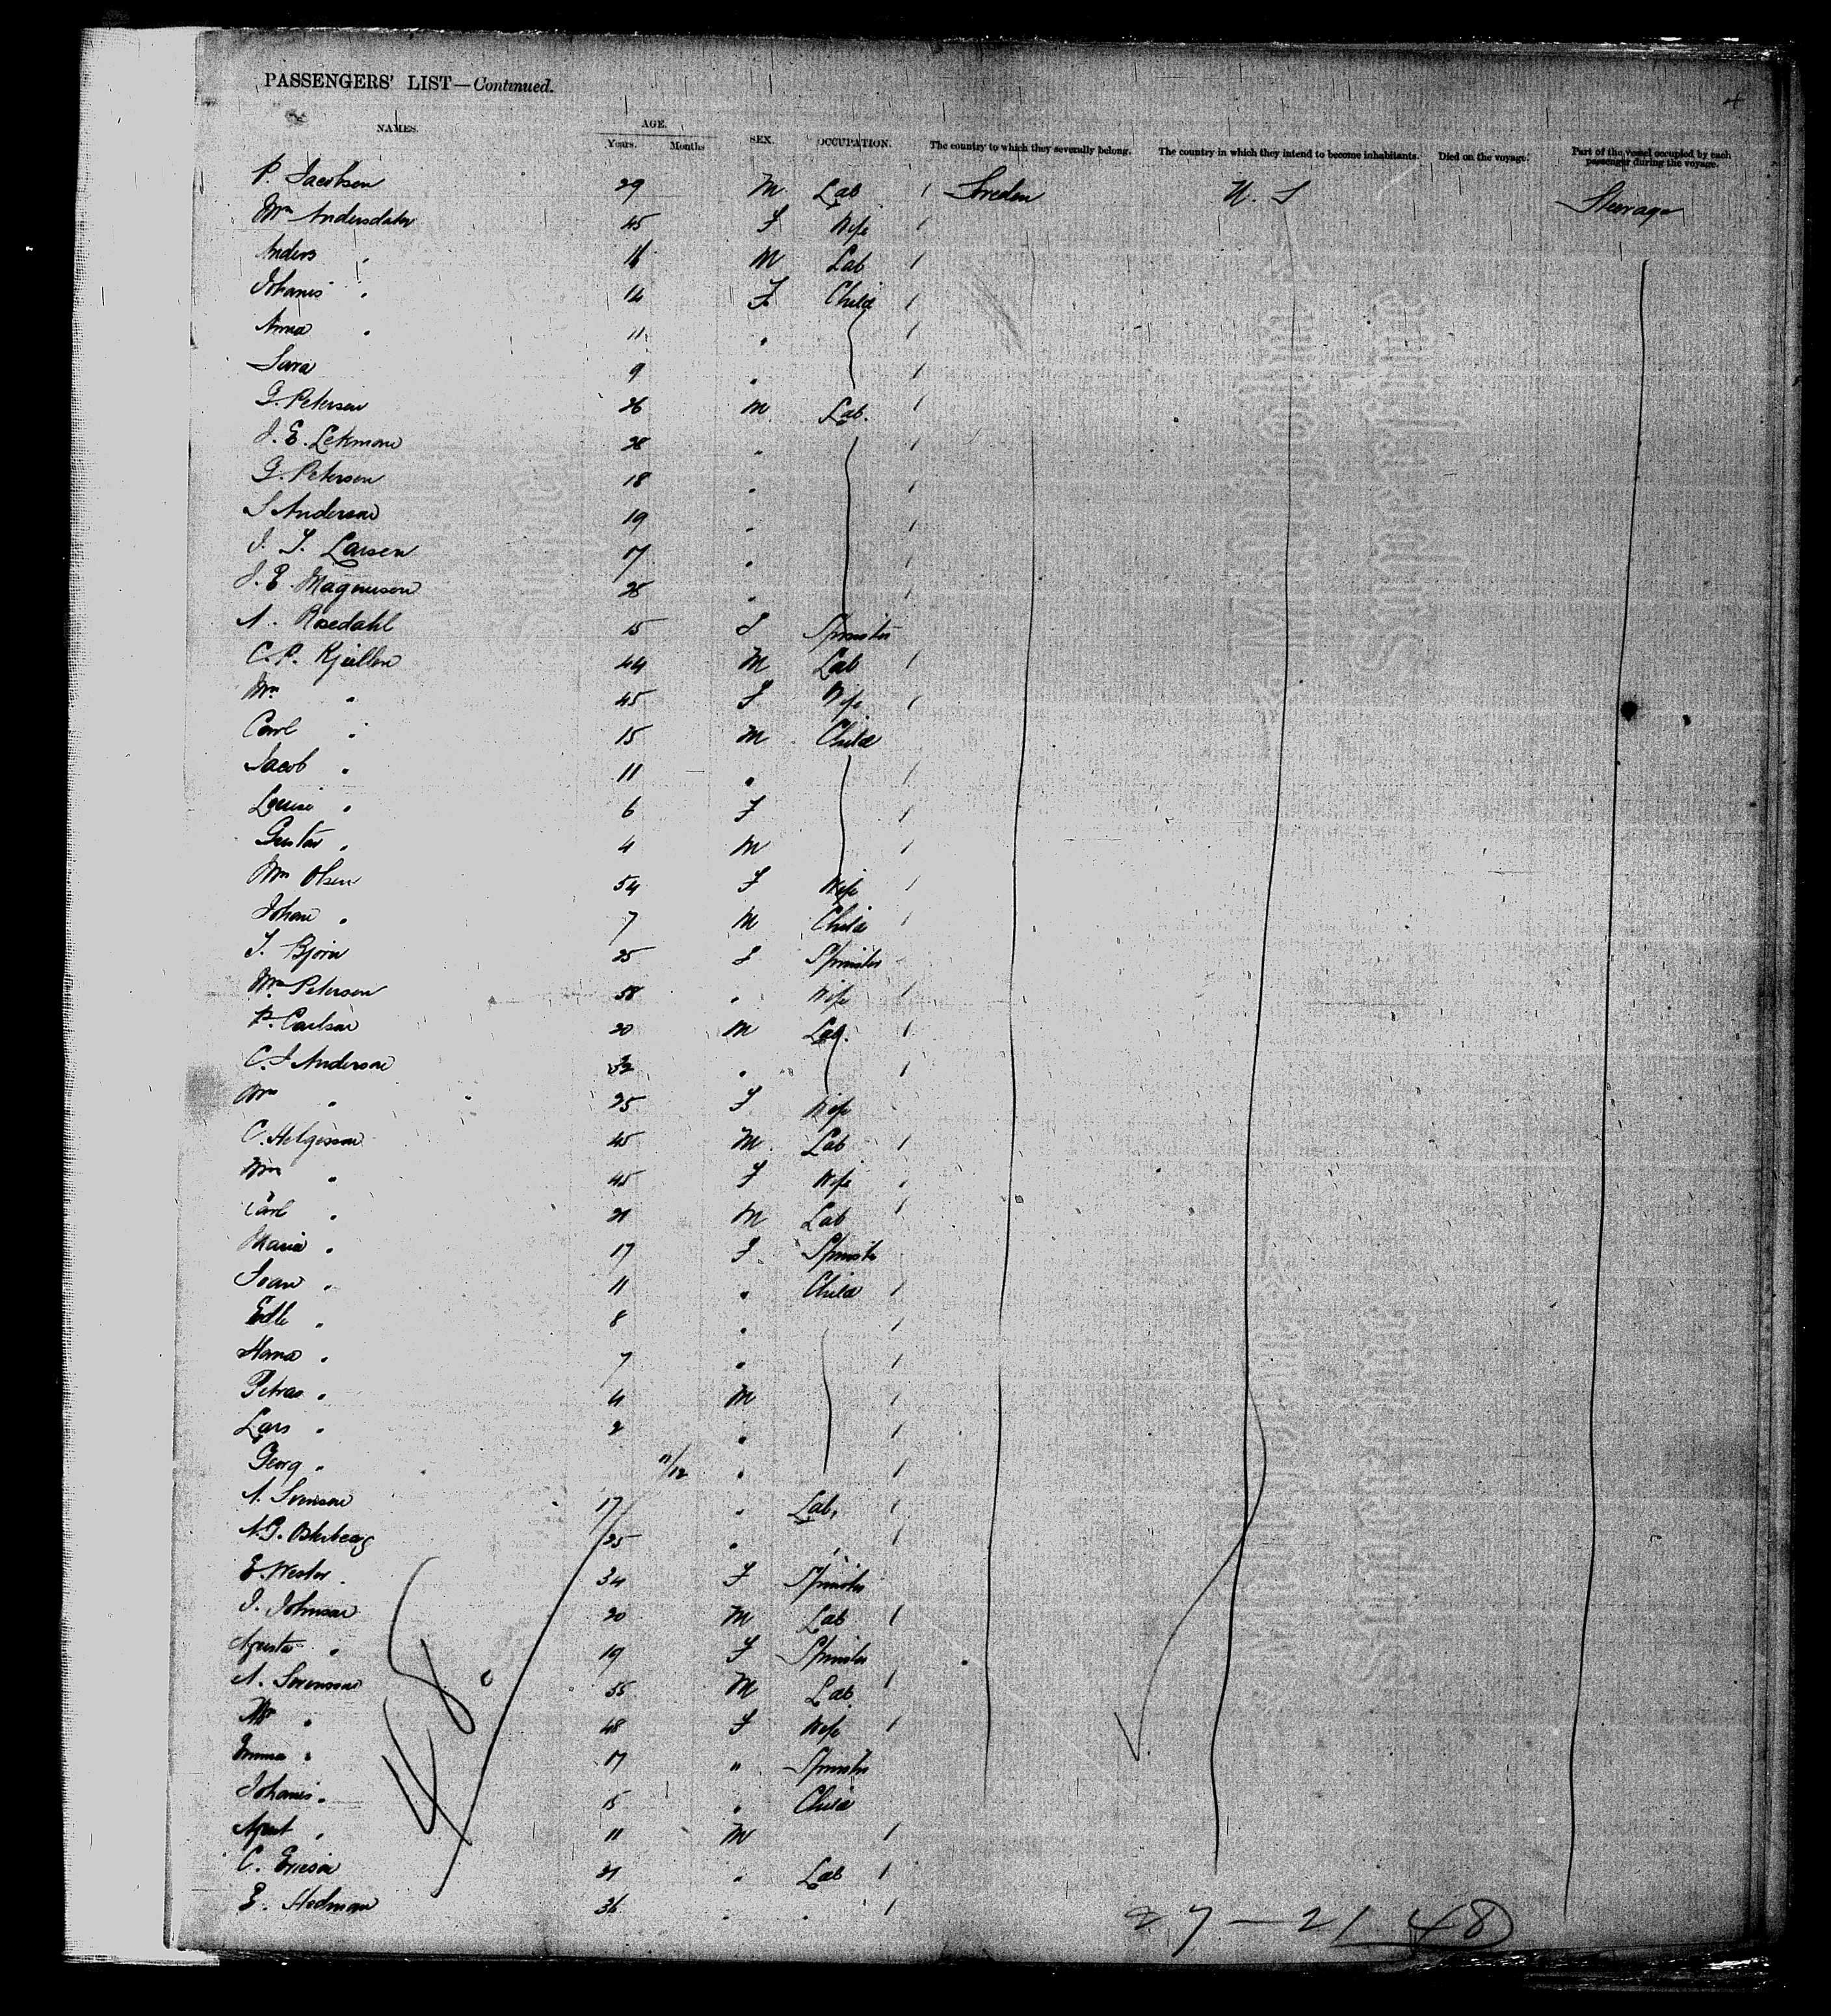 PASSENGERS' LIST—Continued.
NAMES. AGE. Years. Months SEX. OCCUPATION. The country to which they severally belong. The country in which they intend to become inhabitants. Died on the voyage. Part of the vessel occupied by each passenger during the voyage.
P. Jacobson 29 M Lab / Sweden U. S Steerage
Mrs Andersdatr 45 F Wife /
Anders " 16 M Lab /
Johanis " 14 F Child /
Anna " 11 " /
Sara 9 " /
G. Peterson 26 M Lab. /
J. E. Lekmon 28 " /
G. Peterson 18 " /
S Anderson 19 " /
J. T. Larsen 17 " /
J. E. Magnuson 28 " /
A. Rosedahl 15 F Spinster
C. P. Kjellen 44 M Lab /
Mrs " 45 F Wife /
Carl " 15 M Child
Jacob " 11 " /
Louise " 6 F /
Gustav " 4 M /
Mrs Olsen 54 F Wife /
Johan " 7 M Child /
T. Bjorn 25 F Spinster
Mrs Peterson 58 " Wife /
P. Carlson 20 M Lab. /
C. J Anderson 32 " /
Mrs " 25 F Wife
C. Helgesson 45 M Lab /
Mrs " 45 F Wife
Carl " 21 M Lab /
Maria " 17 F Spinster
Joan " 11 " Child /
Edle " 8 " /
Hana " 7 " /
Petras " 4 M /
Lars " 2 " /
Georg " 11/12 " /
A. Svenson 17 " Lab. /
A. G. Osterberg 25 " /
E. Wester 34 F Spinster
J. Johnson 20 M Lab /
Agusta " 19 F Spinster
A. Svensson 55 M Lab /
Mrs " 48 F Wife /
Emma " 17 " Spinster
Johanis " 15 " Child
Agust " 11 M /
C. Ericson 21 " Lab /
E. Hedman 36 " " /
48.
27 — 21 48